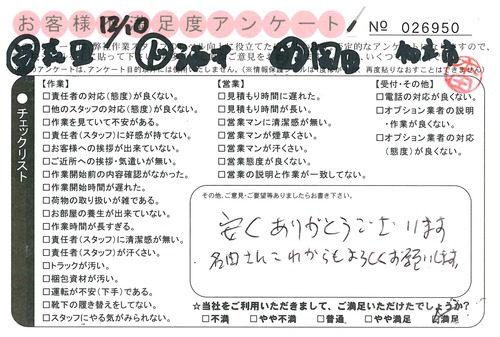 お客様 12/10 足度アンケート
№ 026950
のアンケートは、アンケート目的以外には使用いたしません。(※情報保護シールは1度貼った後、再度貼りなおすことはできません)
チェックリスト
【作業】
□責任者の対応(態度)が良くない。
□他のスタッフの対応(態度)が良くない。
□作業を見ていて不安がある。
□責任者(スタッフ)に好感が持てない。
□お客様への挨拶が出来ていない。
□ご近所への挨拶・気遣いが無い。
□作業開始前の内容確認がなかった。
□作業開始時間が遅れた。
□荷物の取り扱いが雑である。
□お部屋の養生が出来ていない。
□作業時間が長すぎる。
□責任者(スタッフ)に清潔感が無い。
□責任者(スタッフ)が汗くさい。
□トラックが汚い。
□梱包資材が汚い。
□運転が不安(下手)である。
□靴下の履き替えをしてない。
□スタッフにやる気がみられない。
【営業】
□見積もり時間に遅れた。
□見積もり時間が長い。
□営業マンに清潔感が無い。
□営業マンが煙草くさい。
□営業マンが汗くさい。
□営業態度が良くない。
□営業の説明と作業が一致してない。
【受付・その他】
□電話の対応が良くない。
□オプション業者の説明
・作業が良くない。
□オプション業者の対応
(態度)が良くない。
その他、ご意見・ご要望等ありましたらお書き下さい。
安くありがとうございます
名田さんこれからもよろしくお願いします。
☆当社をご利用いただきまして、ご満足いただけたでしょうか?
□不満 □やや不満 □普通 □やや満足 □満足